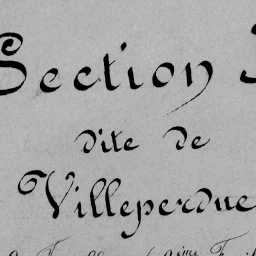 Section
dite de
Villeperdue